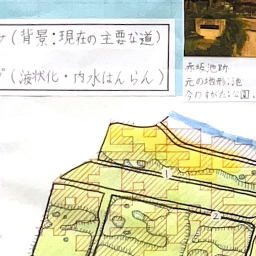 (背景:現在の主要な道)
(液状化・内水はんらん)
赤坂池跡
元の地形:池
今のすがた:公園
1
2